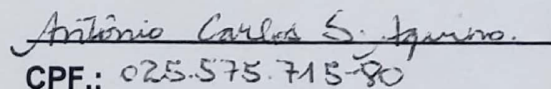 Antônio Carlos S. Aquino.
CPF.: 025.575.715-80